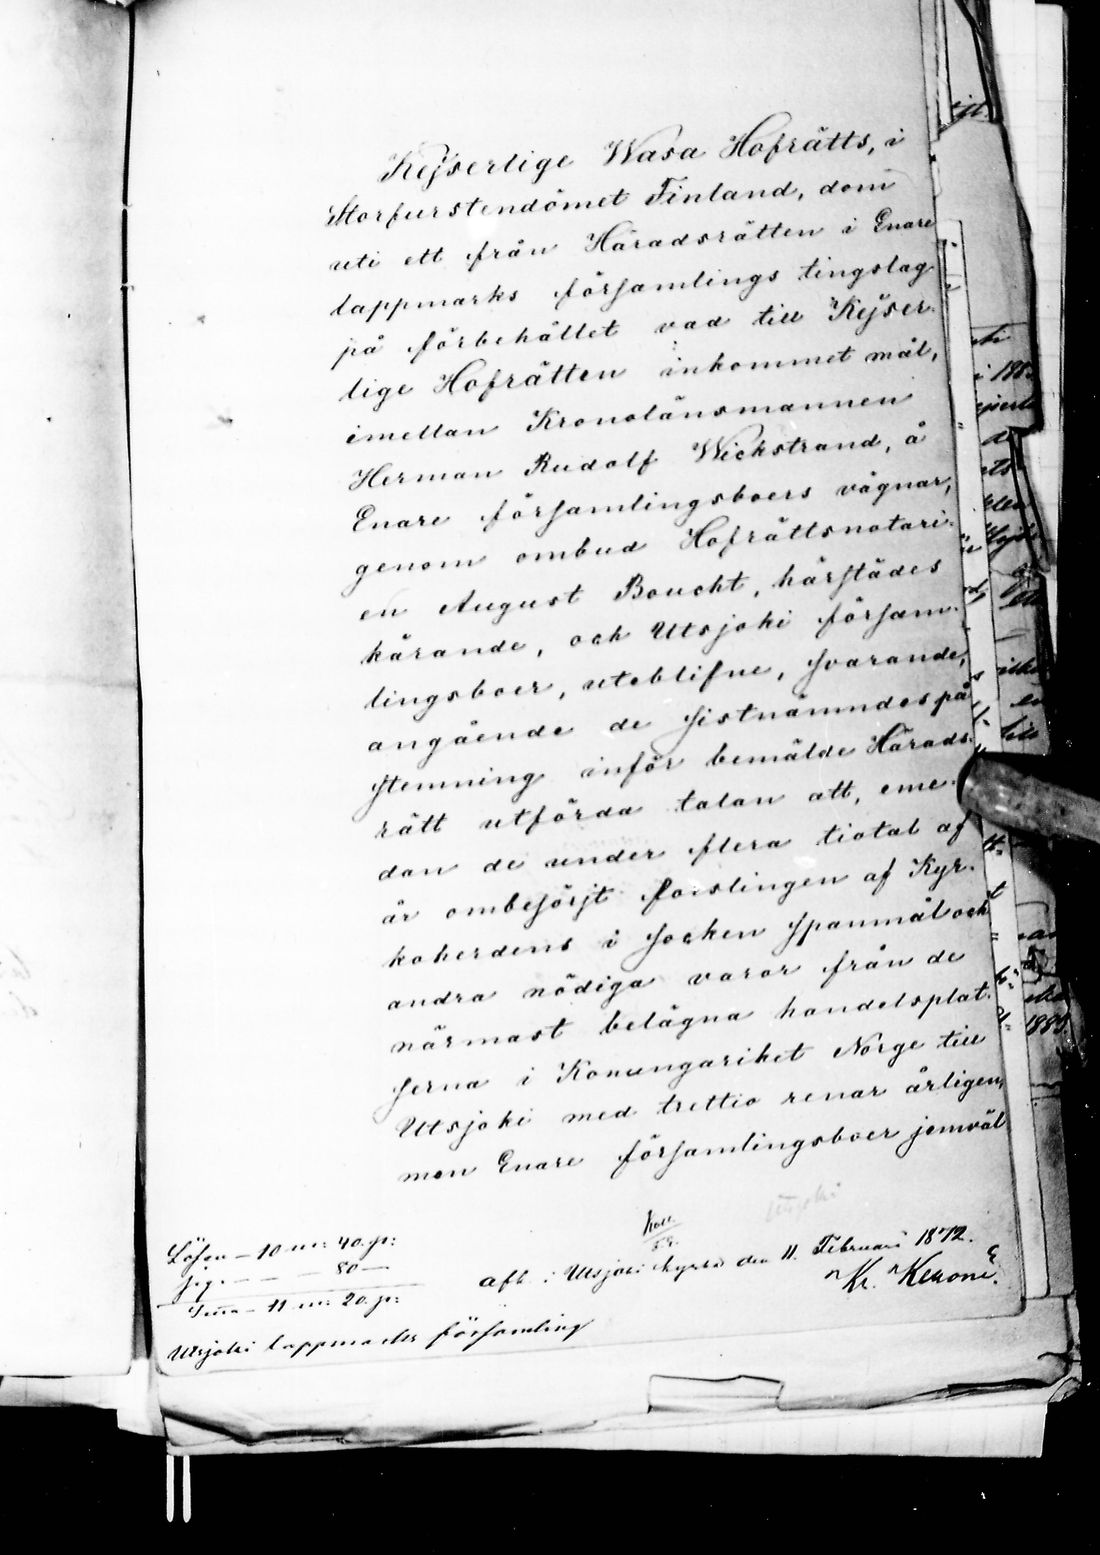 Kejserlige Wasa Hofrätts, i
Storfurstendömet Finland, dom
uti ett från Häradsrätten i Enare
lappmarks församlings tingslag
på förbehållet vad till Kejser-
lige Hofrätten inkommet mål,
imellan Kronolänsmannen
Herman Rudolf Wickstrand, å
Enare församlingsboers vägnar,
genom ombud Hofrättsnotari-
en August Boucht, härstädes
kärande, och Utsjoki försam-
lingsboer, uteblifne, svarande,
angående de sistnämndes på
stemning inför bemälde Härads-
rätt utförda talan att, eme-
dan de under flera tiotal af
år ombesörjt forslingen af Kyr-
koherdens i socken spanmål och
andra nödiga varor från de
närmast belägna handelsplat-
serna i Konungariket Norge till
Utsjoki med trettio renar årligen,
men Enare församlingsboer jemväl
Utsjoki
Lösen – 10 m: 40 p:
80 –
S:ma – 11 m: 20 p:
Utsjoki lappmarks församling
i Utsjoki kyrka den 11 Februari 1872.